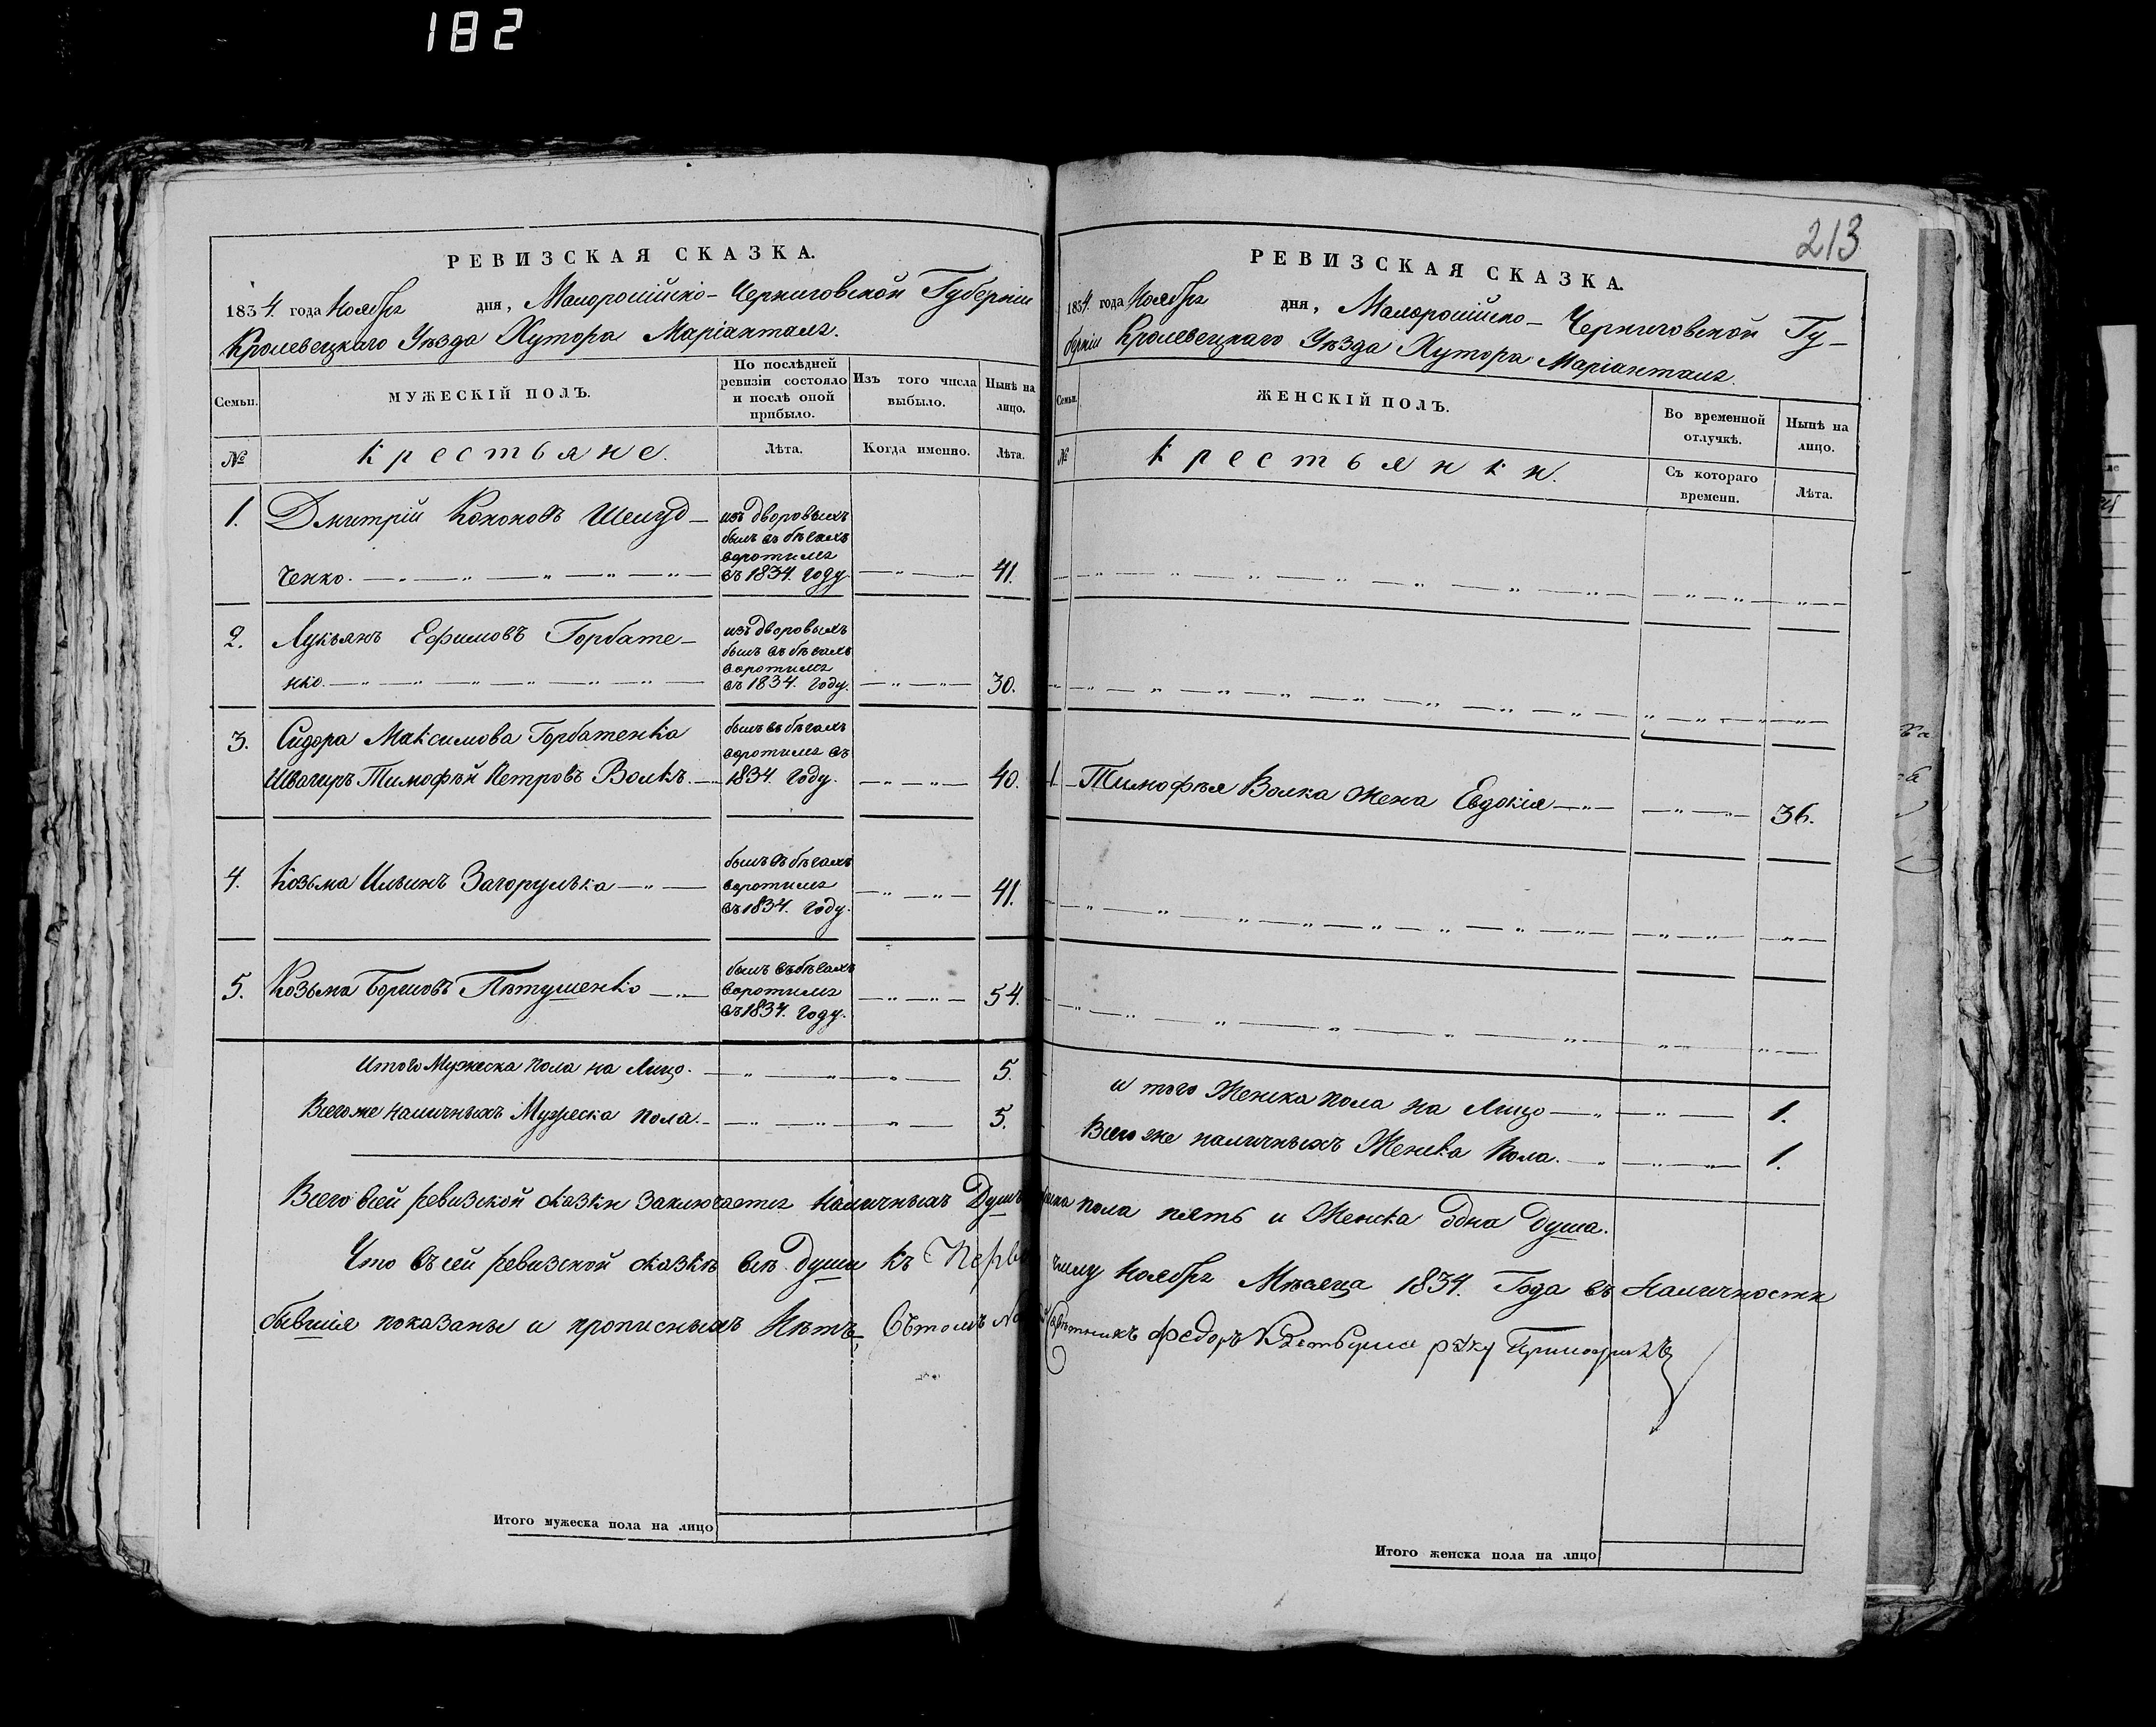 182
РЕВИЗСКАЯ СКАЗКА.
1834. года Ноября дня, Малоросійско-Черниговской Губерніи
Кролевецкаго Уѣзда Хутора Маріанталя.
Семьи.
МУЖЕСКІЙ ПОЛЪ.
По послѣдней ревизіи состояло и послѣ оной прибыло.
Изъ того числа выбыло.
Нынѣ на лицо.
№
Крестьяне.
Лѣта.
Когда именно.
Лѣта.
1. Дмитрій Кононовъ Шелуд-
ченко.
изъ дворовыхъ
былъ въ бѣгахъ
воротился
въ 1834. году.
41.
2. Лукьянъ Ефимовъ Горбате-
нко.
изъ дворовыхъ
былъ въ бѣгахъ
воротился
въ 1834. году.
30.
3. Сидора Максимова Горбатенка
Швагиръ Тимофѣй Петровъ Волкъ.
былъ въ бѣгахъ
воротился въ
1834. году.
40.
4. Козьма Ильинъ Загорулька
былъ въ бѣгахъ
воротился
въ 1834. году.
41.
5. Козьма Борисовъ Пѣтушенко
былъ въ бѣгахъ
воротился
въ 1834. году.
54.
Итого Мужеска пола на Лицо. 5.
Всего же наличныхъ Мужеска пола. 5.
Всего всей ревизской сказки заключается наличныхъ Душъ
Что въ сей ревизской сказкѣ всѣ души къ
бывшія показаны и прописныхъ Нѣтъ, Въ томъ
Итого мужеска пола на лицо
213
РЕВИЗСКАЯ СКАЗКА.
1834. года Ноября дня, Малоросійско-Черниговской Гу-
берніи Кролевецкаго Уѣзда Хутора Маріанталя.
Семьи.
ЖЕНСКІЙ ПОЛЪ.
Во временной отлучкѣ.
Нынѣ на лицо.
№
Крестьянки.
Съ котораго времени.
Лѣта.
Тимофѣя Волка жена Евдокія 36.
и того Женска пола на Лицо 1.
Всего же наличныхъ Женска пола. 1.
пола пять и Женска одна душа.
числу Ноября Мѣсяца 1834. Года въ Наличности
Федоръ
Итого женска пола на лицо